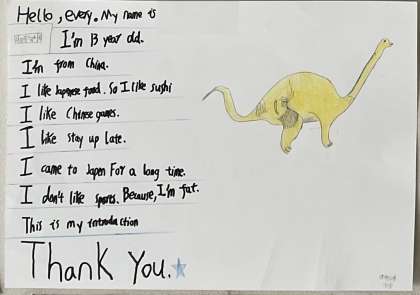 Hello, every. My name is
I'm 13 year old.
I'm from China.
I like Japenese food. So I like sushi
I like Chinese games.
I like stay up late.
I came to Japen For a long time.
I don't like sports. Because, I'm fat.
This is my introduction
Thank You.